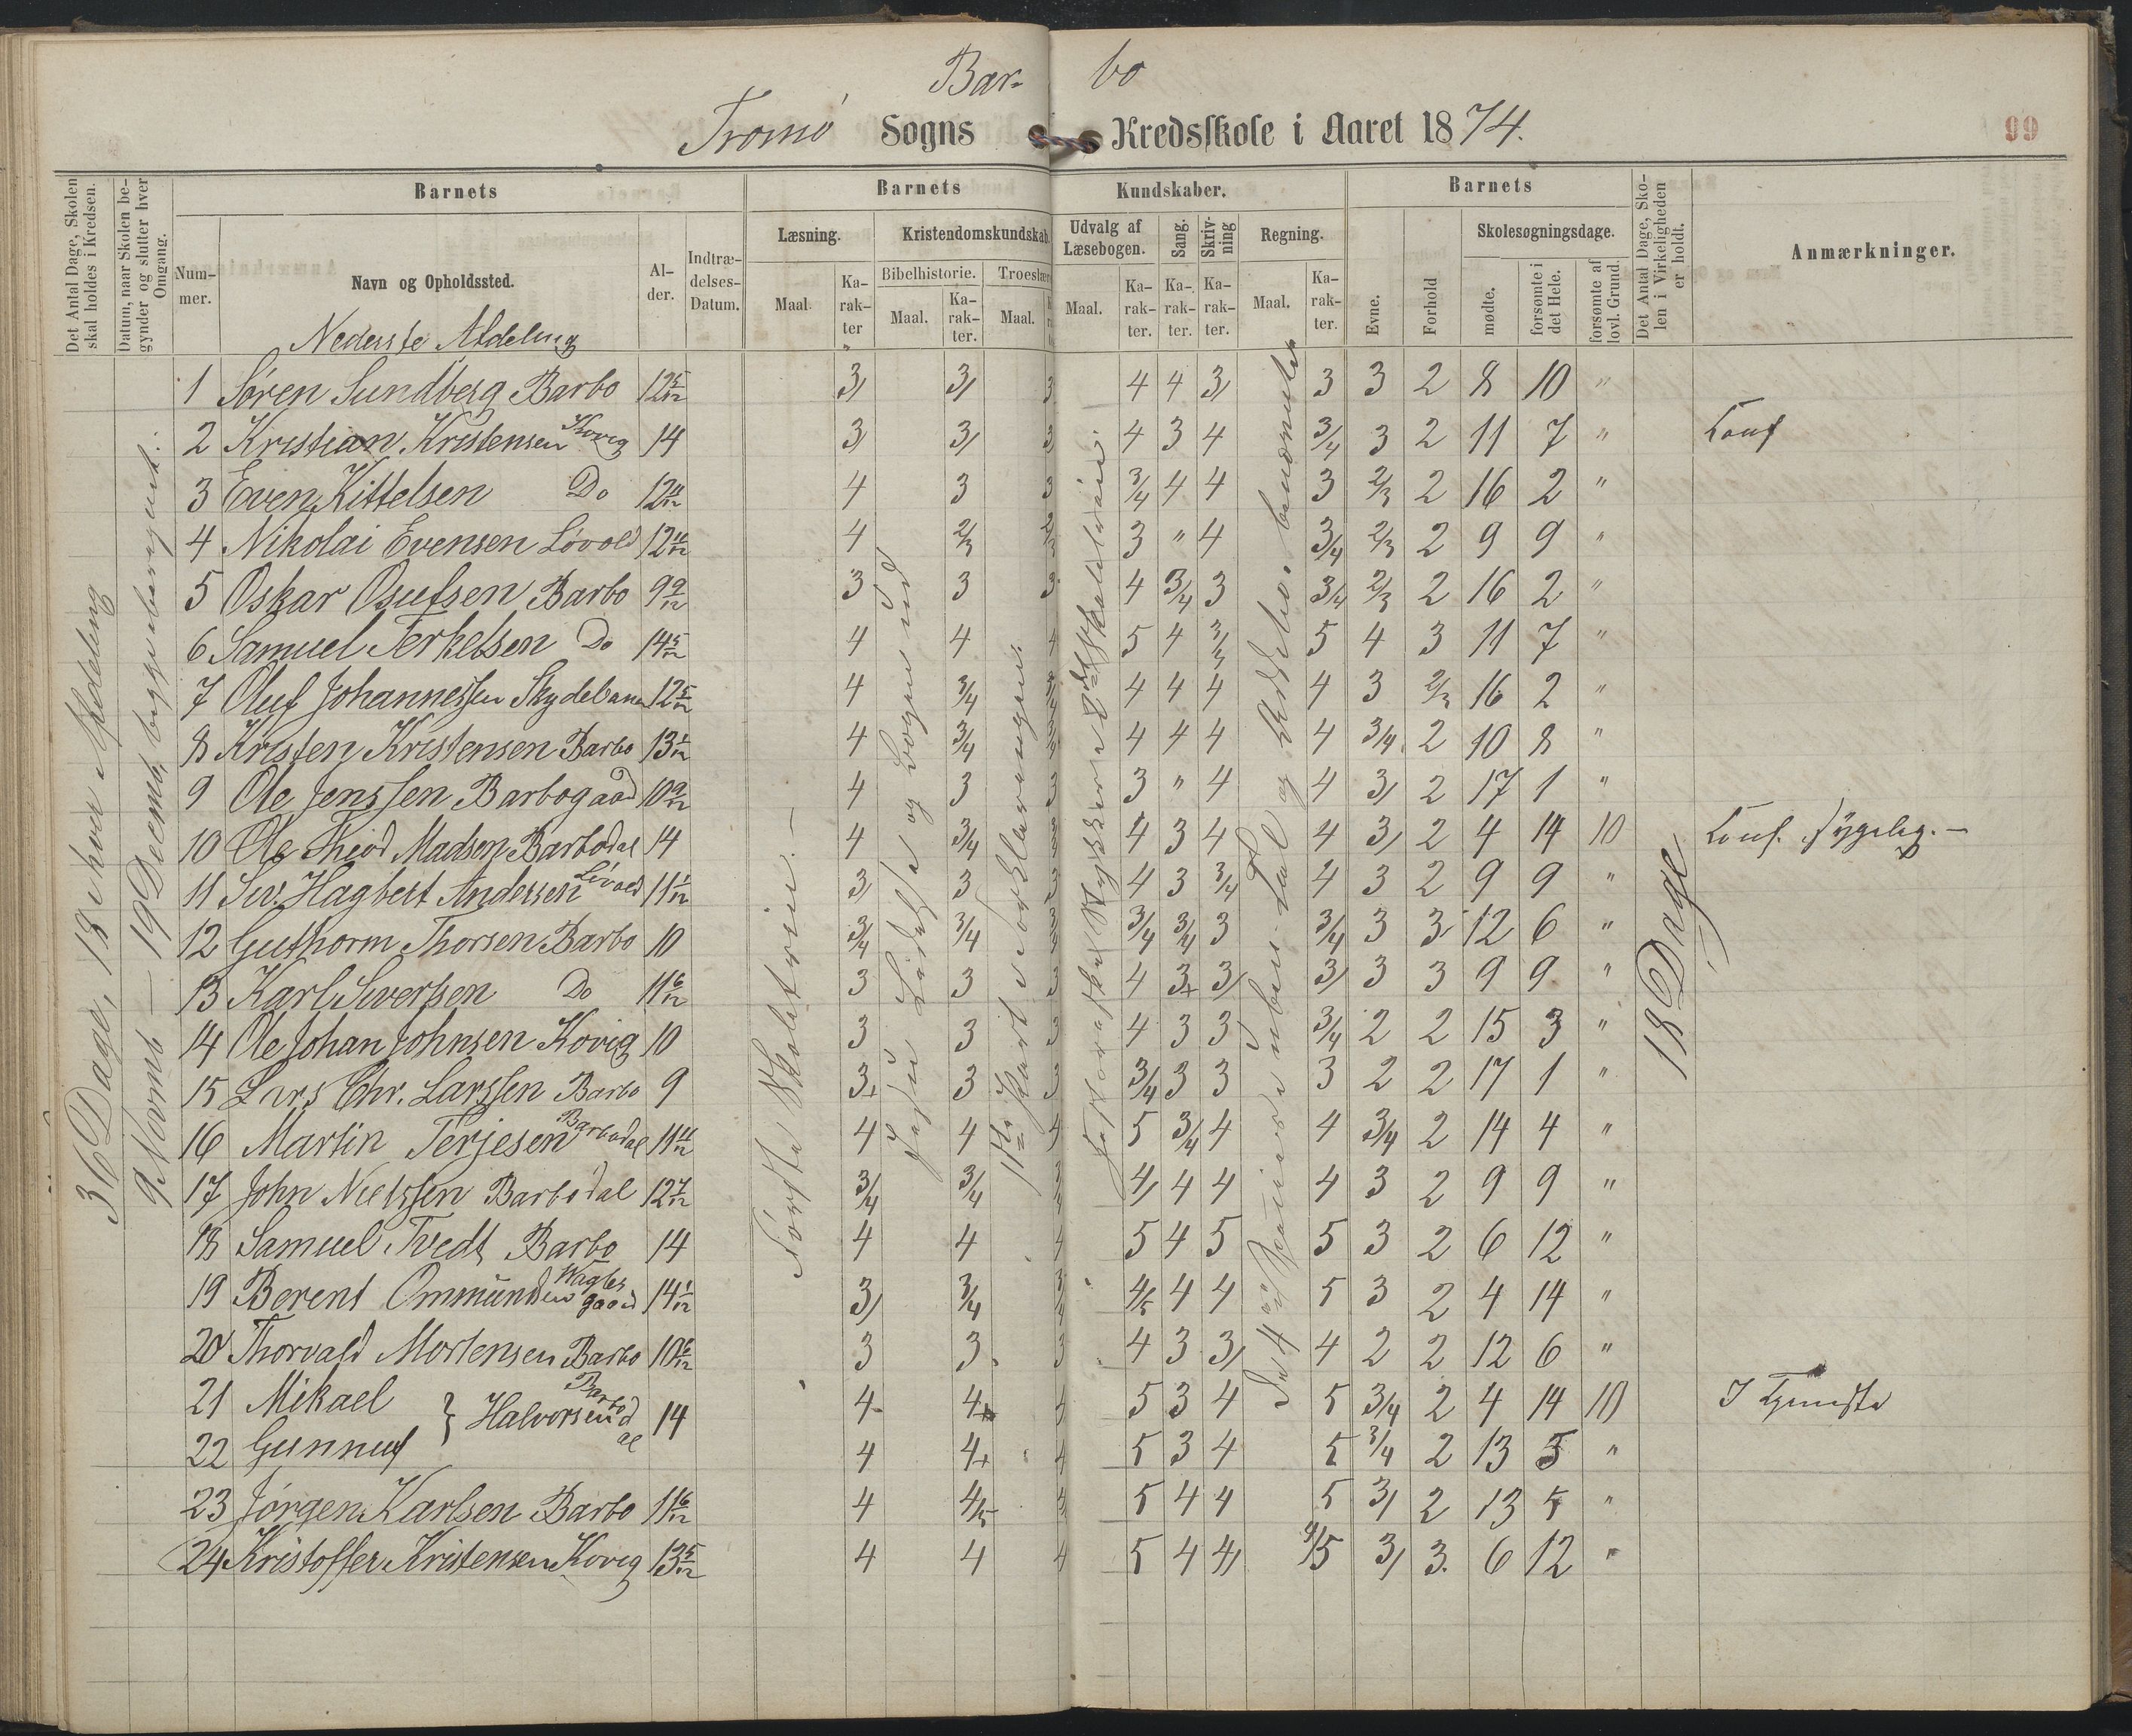 Bar- bo
Tromø Sogns Kredsskole i Aaret 1874.
99
Det Antal Dage, Skolen skal holdes i Kredsen.
Datum, naar Skolen begynder og slutter hver Omgang.
Barnets
Nummer.
Navn og Opholdssted.
Alder.
Indtrædelses-Datum.
Barnets Kundskaber.
Læsning.
Maal. Karakter
Kristendomskundskab.
Bibelhistorie. Maal. Karakter.
Troeslære Maal.
Udvalg af Læsebogen. Maal. Karakter.
Sang. Karakter.
Skrivning Karakter.
Regning. Maal. Karakter.
Barnets
Evne.
Forhold
Skolesøgningsdage.
mødte.
forsømte i det Hele.
forsømte af lovl. Grund.
Det Antal Dage, Skolen i Virkeligheden er holdt.
Anmærkninger.
Nederste Afdeling
36 Dage, 18 i hver Afdeling
9 Novemb — 19 Decemb,
Første Skoletrin. —
18 Dage
1 Søren Sundberg Barbo 12 5/12 3/ 3/ 3 4 4 3/ 3 3 2 8 10 "
2 Kristian Kristensen Kovig 14 3/ 3/ 3 4 3 4 3/4 3 2 11 7 " Conf
3 Even Kittelsen Do 12 11/12 4 3 3 3/4 4 4 3 2/3 2 16 2 "
4 Nikolai Evensen Løvold 12 11/12 4 2/3 2/3 3 " 4 3/4 2/3 2 9 9 "
5 Oskar Osufsen Barbo 9 9/12 3 3 3 4 3/4 3 3/4 2/3 2 16 2 "
6 Samuel Terkelsen Do 14 5/12 4 4 4 5 4 5 4 3 11 7 "
7 Oluf Johannessen Skydebanen 12 5/12 4 3/4 3/4 4 4 4 4 3 2/3 16 2 "
8 Kristen Kristensen Barbo 13 1/12 4 3/4 3/4 4 4 4 4 3/4 2 10 8 "
9 Ole Jenssen Barbogaard 10 9/12 4 3 3 3 " 4 4 3/ 2 17 1 "
10 Ole Theod Madsen Barbodal 14 4 3/4 3/4 4 3 4 4 3/ 2 4 14 10 Conf. sygelig. —
11 Siv. Hagbert Andersen Løvold 11 1/12 3/ 3 3 4 3 3/4 4 3 2 9 9 "
12 Guthorm Thorsen Barbo 10 3/4 3/4 3/4 3/4 3/4 3 3/4 3 3 12 6 "
13 Karl Siversen Do 11 6/12 3 3 3 4 3+ 3/ 3/ 3 3 9 9 "
14 Ole Johan Johnsen Kovig 10 3 3 3 4 3 3 3/4 2 2 15 3 "
15 Lars Chr. Larssen Barbo 9 3+ 3 3 3/4 3 3 3 2 2 17 1 "
16 Martin Terjesen Barbodal 11 11/12 4 4 4 5 3/4 4 4 3/4 2 14 4 "
17 John Nielssen Barbodal 12 7/12 3/4 3/4 3/4 4/ 4 4 4 3 2 9 9 "
18 Samuel Tvedt Barbo 14 4 4 4 5 4 5 5 3 2 6 12 "
19 Berent Ommundsen 14 1/12 3/ 3/4 3/4 4/5 4 4 5 3 2 4 14 "
20 Thorvald Mortensen Barbo 10 6/12 3 3 3 4 3 3/ 4 2 2 12 6 "
21 Mikael } Halvorsen Barbodal 14 4 4+ 4 5 3 4 5 3/4 2 4 14 10 I Tjeneste
22 Gunnuf 4 4+ 4 5 3 4 5 3/4 2 13 5 "
23 Jørgen Karlsen Barbo 11 6/12 4 4/5 4 5 4 4 5 3/ 2 13 5 "
24 Kristoffer Kristensen Kovig 13 5/12 4 4 4 5 4 4/ 4/5 3/ 3 6 12 "